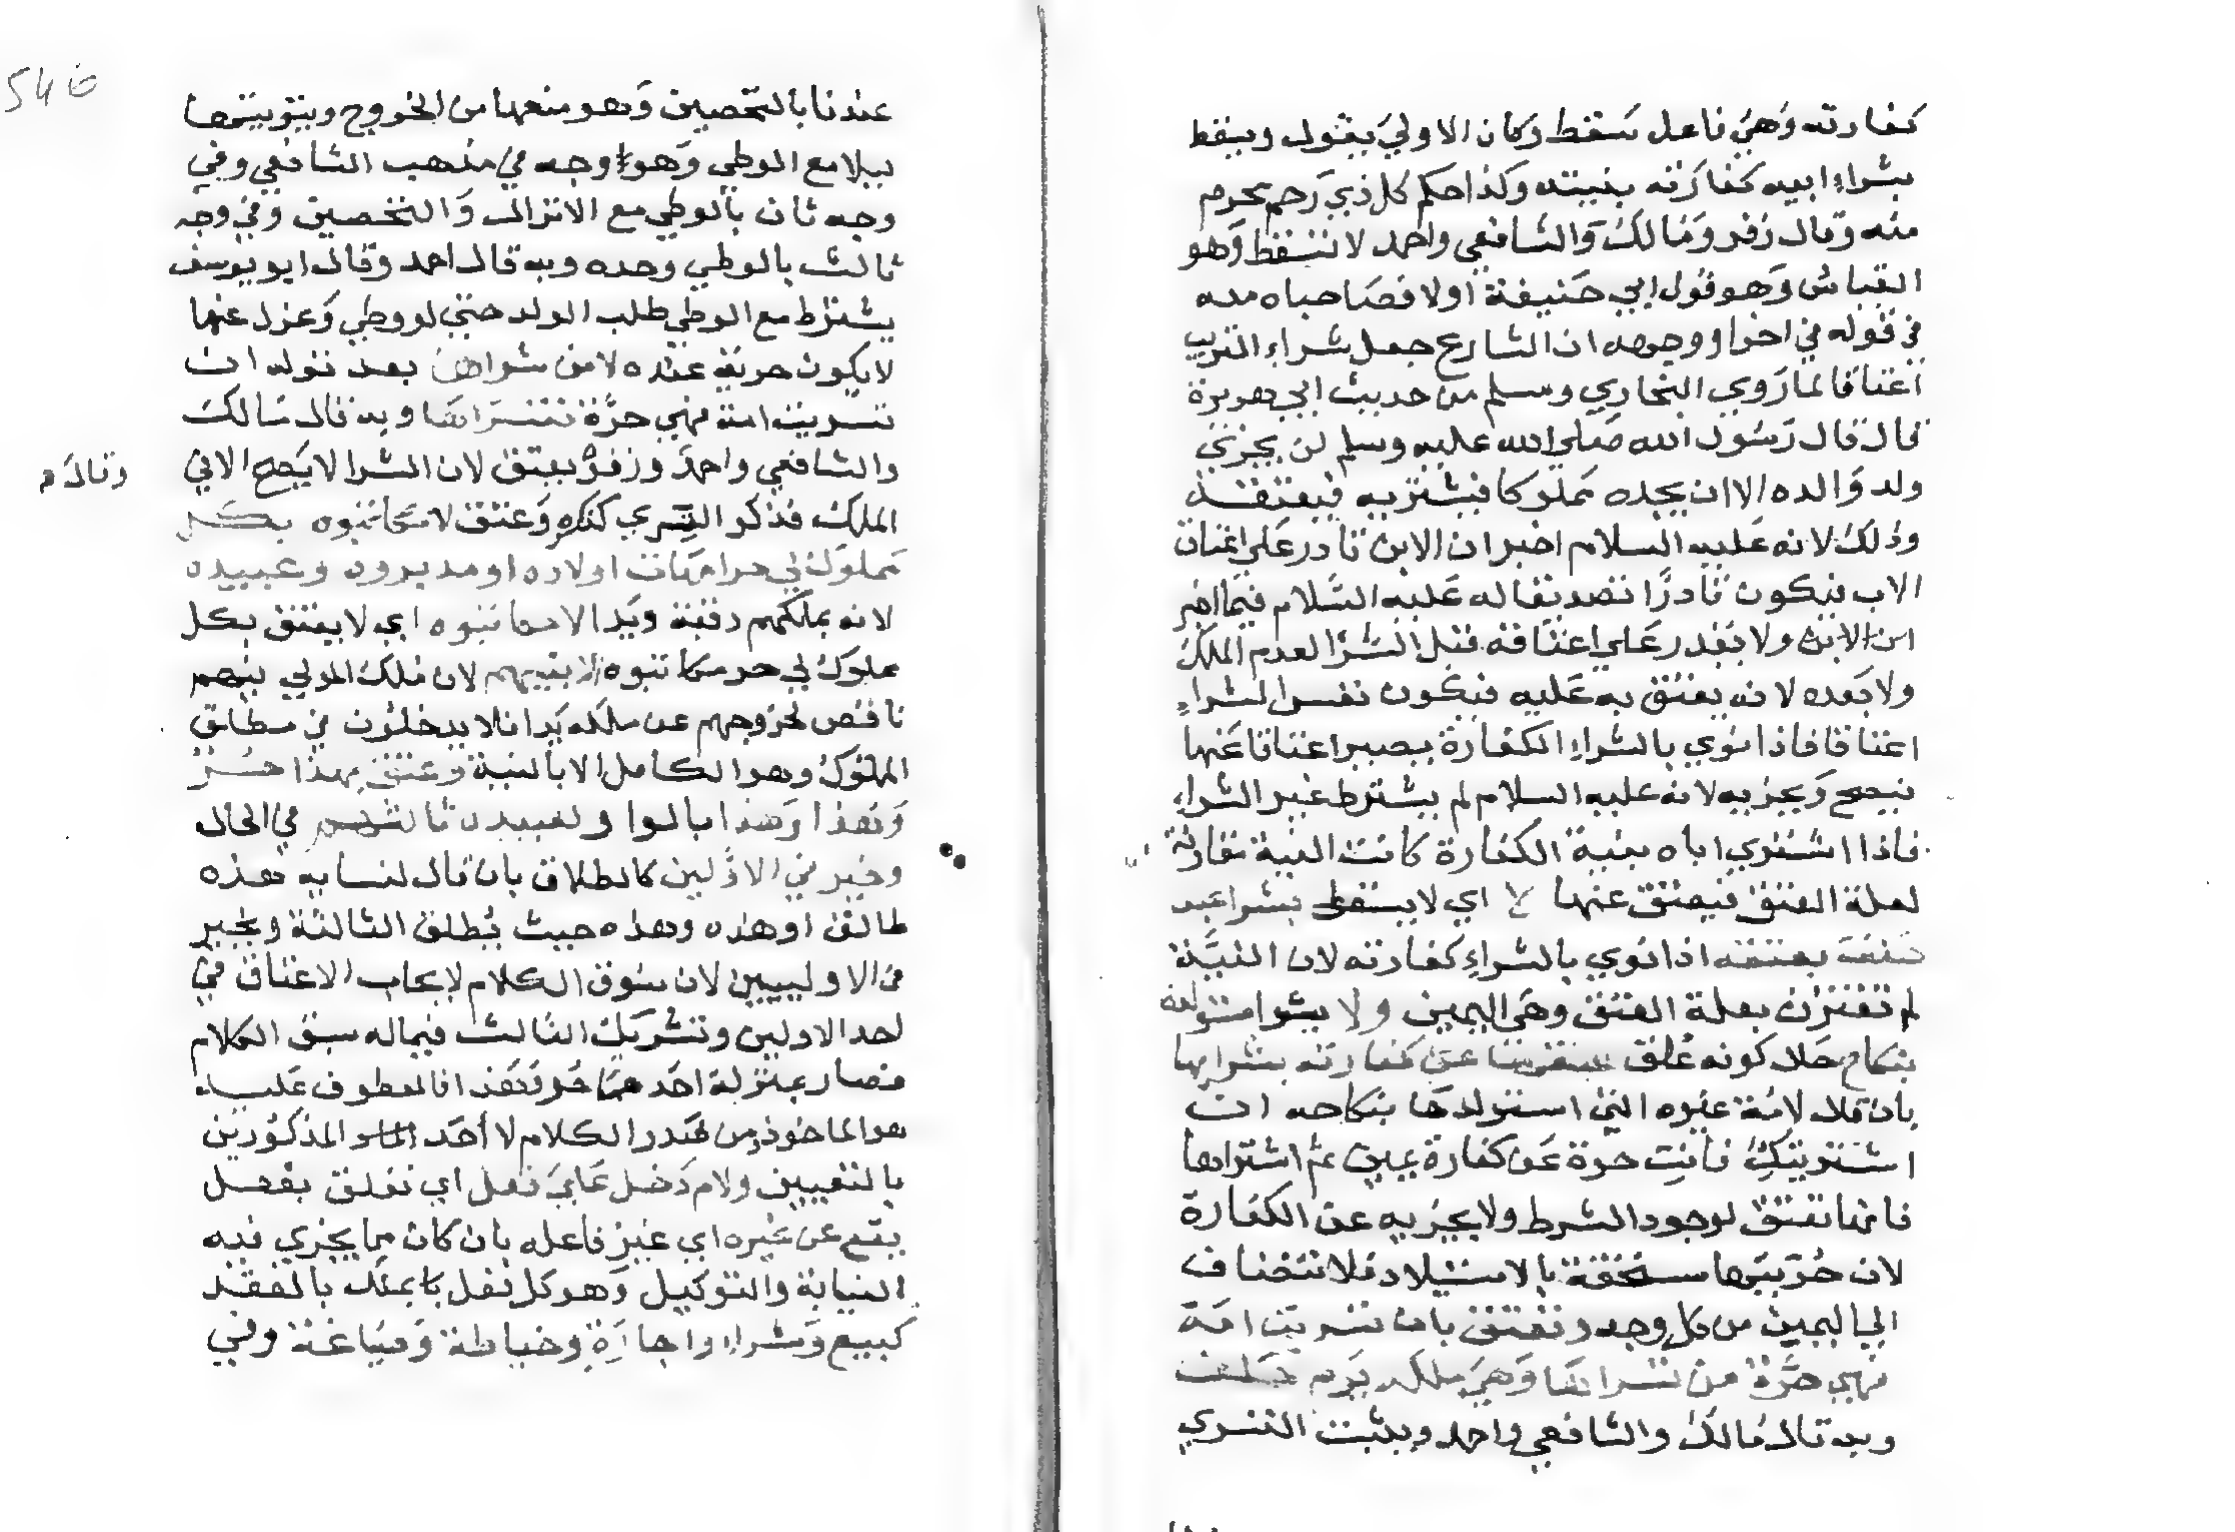 كفارته وهي فاعل سقط وكان الاولي يقول ويسقط
بشراء ابيه كفارته بنيته وكذا حكم كل ذي رحم محرم
منه وقال زفر ومالك والشافعي واحمد لا تسقط وهو
القياس وهو قول ابي حنيفة اولا فصاحباه معه
في قوله في اخرا ووجهه ان الشارع جعل شراء القريب
اعتاقا لما روي البخاري ومسلم من حديث ابي هريرة
قال قال رسول الله صلي الله عليه وسلم لن يجزي
ولد والده الا ان يجده مملوكا فيشتريه فيعتقه
وذلك لانه عليه السلام اخبر ان الابن قادر علي اعتاق
الاب فيكون قادرا تصديقا له عليه السلام فيما اخبر
ان الابن ولا يقدر علي اعتاقه قبل الشرا لعدم الملك
ولا بعده لانه يعتق به عليه فيكون نفس الشراء
اعتاقا فاذا نوي بالشراء الكفارة يصير اعتاقا عنها
فيصح ويجزيه لانه عليه السلام لم يشترط غير الشراء
فاذا اشتري اباه بنية الكفارة كانت النية مقارنة
لعلة العتق فيعتق عنها لا اي لا يسقط بشرا عبد
حلف بعتقه اذا نوي بالشراء كفارته لان النية
لم تقترن بعلة العتق وهي اليمين ولا بشرا مستولدة
بنكاح حال كونه علق عتقها عن كفارته بشرايها
بان قال لامة غيره التي استولدها بنكاحه ان
اشتريتك فانت حرة عن كفارة يمين ثم اشتراها
فانها تعتق لوجود الشرط ولا يجزيه عن الكفارة
لان حريتها مستحقة بالاستيلاد فلا تنضاف
الي اليمين من كل وجه وتعتق بان تسريت امة
فهي حرة من تسراها وهي ملكه يوم حلف
وبه قال مالك والشافعي واحمد ويثبت التسري
عندنا بالتحصين وهو منعها من الخروج وبيتوتتها
ليلا مع الوطي وهو وجه في مذهب الشافعي وفي
وجه ثان بالوطي مع الانزال والتحصين وفي وجه
ثالث بالوطي وحده وبه قال احمد وقال ابو يوسف
يشترط مع الوطي طلب الولد حتي لو وطي وعزل عنها
لا يكون حرية عنده لا من شراها بعد قوله ان
تسريت امة فهي حرة فتسراها وبه قال مالك
والشافعي واحمد وزفر يعتق لان الشرا لا يصح الا في
وقال م
الملك فذكر التسري كذكره وعتق لا مكاتبوه بكل
مملوك لي حر امهات اولاده ومدبروه وعبيده
لانه يملكهم رقبة ويدا لا مكاتبوه اي لا يعتق بكل
مملوك لي حر مكاتبوه الا بنيتهم لان ملك المولي فيهم
ناقص لخروجهم عن ملكه يدا فلا يدخلون في مطلق
المملوك وهو الكامل الا بالنية وعتق بهذا حر
وهذا وهذا بالواو لعبيده ثالثهم في الحال
وخير في الاولين كالطلاق بان قال لنسايه هذه
طالق او هذه وهذه حيث تطلق الثالثة ويخير
في الاوليين لان سوق الكلام لايجاب الاعتاق في
احد الاولين وتشريك الثالث فيما له سبق الكلام
فصار بمنزلة احدهما حر وهذا فالمعطوف عليه
هو الماخوذ من صدر الكلام لا أحد المذكورين
بالتعيين ولام دخل علي فعل اي تعلق بفعل
يقع عن غيره اي غير فاعله بان كان مما يجزي فيه
النيابة والتوكيل وهو كل فعل يملك بالعقد
كبيع وشراء واجارة وخياطة وصياغة وفي